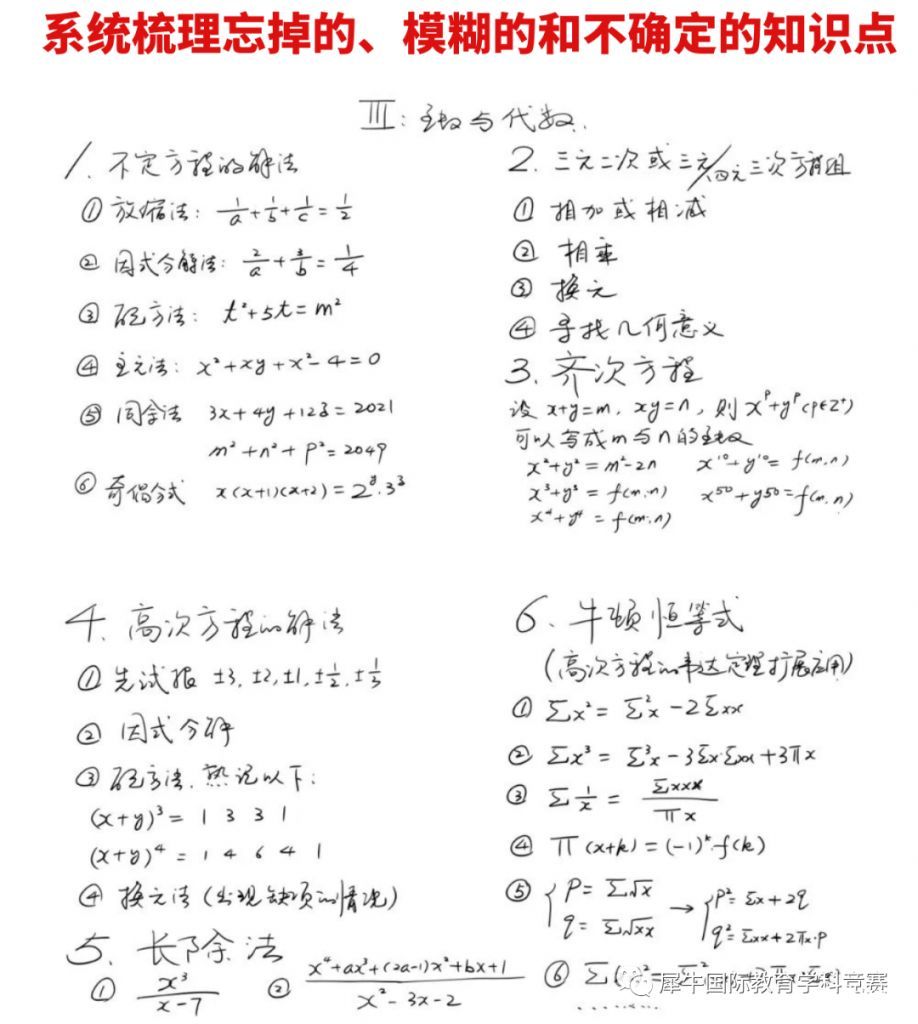 系统梳理忘掉的、模糊的和不确定的知识点
III: 函数与代数.
1. 不定方程的解法
① 放缩法: 1/a + 1/b + 1/c = 1/2
② 因式分解法: 2/a + 3/b = 1/4
③ 配方法: t²+5t=m²
④ 主元法: x²+xy+x²-4=0
⑤ 同余法 3x+4y+12z=2021
m²+n²+p²=2049
⑥ 奇偶分式 x(x+1)(x+2)=2^y·3^z
2. 三元二次或三元/四元三次方程组
① 相加或相减
② 相乘
③ 换元
④ 寻找几何意义
3. 齐次方程
设 x+y=m, xy=n, 则 x^p+y^p (p∈Z⁺)
可以写成m与n的函数
x²+y²=m²-2n x¹⁰+y¹⁰=f(m,n)
x³+y³=f(m,n) x⁵⁰+y⁵⁰=f(m,n)
x⁴+y⁴=f(m,n)
4. 高次方程的解法
① 先试根 ±3, ±2, ±1, ±1/2, ±1/3
② 因式分解
③ 配方法, 熟记以下:
(x+y)³= 1 3 3 1
(x+y)⁴= 1 4 6 4 1
④ 换元法 (出现缺项的情况)
5. 长除法
① x³/(x-7) ② (x⁴+ax³+(2a-1)x²+bx+1)/(x²-3x-2)
6. 牛顿恒等式
(高次方程的韦达定理扩展应用)
① Σx²=Σ²x-2Σxx
② Σx³=Σ³x-3Σx·Σxx+3πx
③ Σ1/x = Σxxx/πx
④ π(x+k)=(-1)^k·f(k)
⑤ { p=Σ√x q=Σ√xx → { p²=Σx+2q q²=Σxx+2πx·p
⑥ Σ
犀牛国际教育学科竞赛